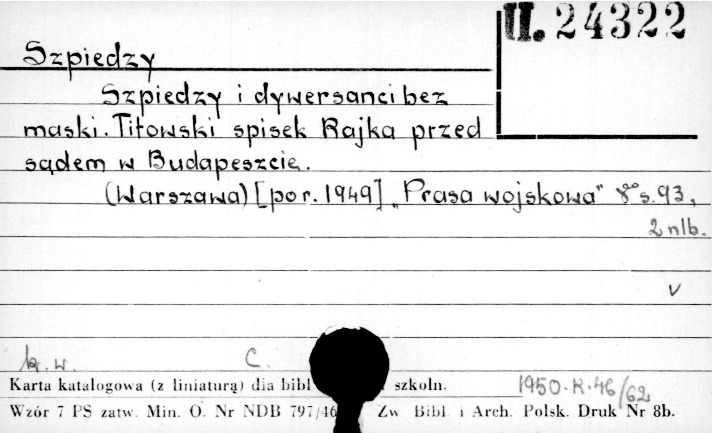 U. 24322
Szpiedzy
Szpiedzy i dywersanci bez
maski. Titowski spisek Rajka przed
sądem w Budapeszcie.
(Warszawa) [por. 1949] „Prasa wojskowa" 8° s. 93,
2 nlb.
v
k. w. C.
Karta katalogowa (z liniaturą) dla bibl szkoln.
1950. K. 46/62
Wzór 7 PS zatw. Min. O. Nr NDB 797/46 Zw. Bibl. i Arch. Polsk. Druk Nr 8b.